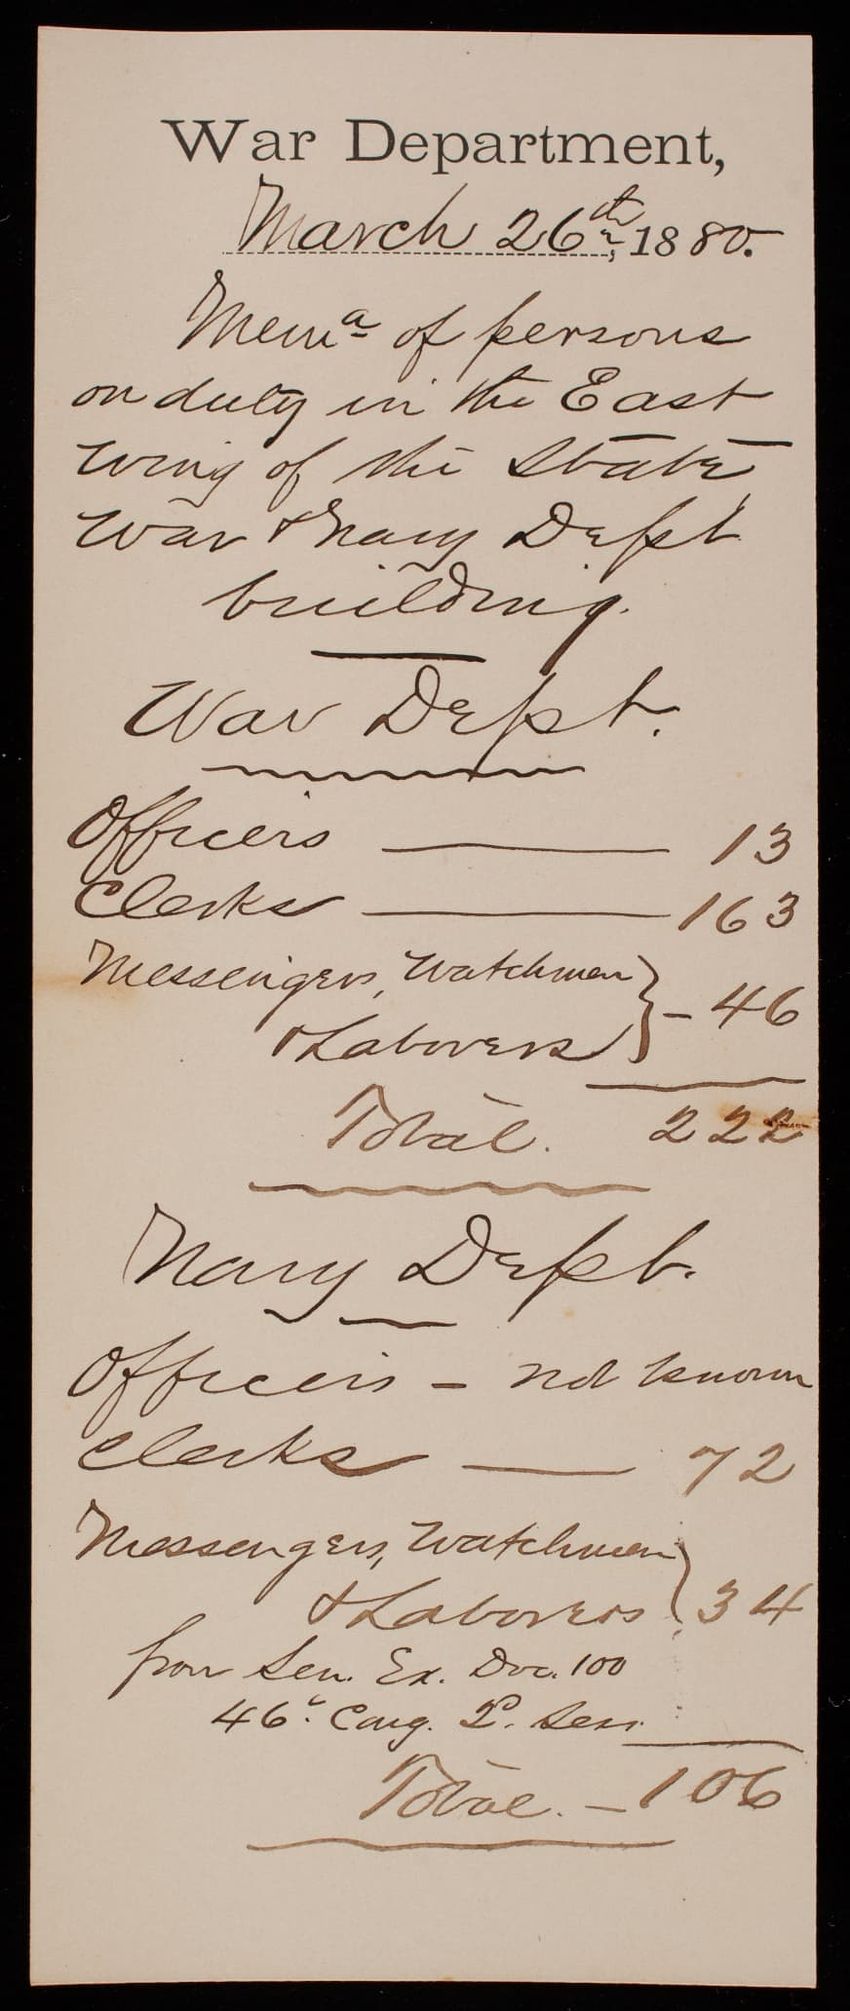 War Department,
March 26th, 1880.
Mema of persons
on duty in the East
Wing of the State,
War & Navy Dept
building.
War Dept.
Officers — 13
Clerks — 163
Messengers, Watchmen
& Laborers } - 46
Total. 222
Navy Dept.
Officers - not known
Clerks — 72
Messengers, Watchmen
& Laborers } 34
from Sen. Ex. Doc. 100
46th Cong. 2d. Sess.
Total. - 106